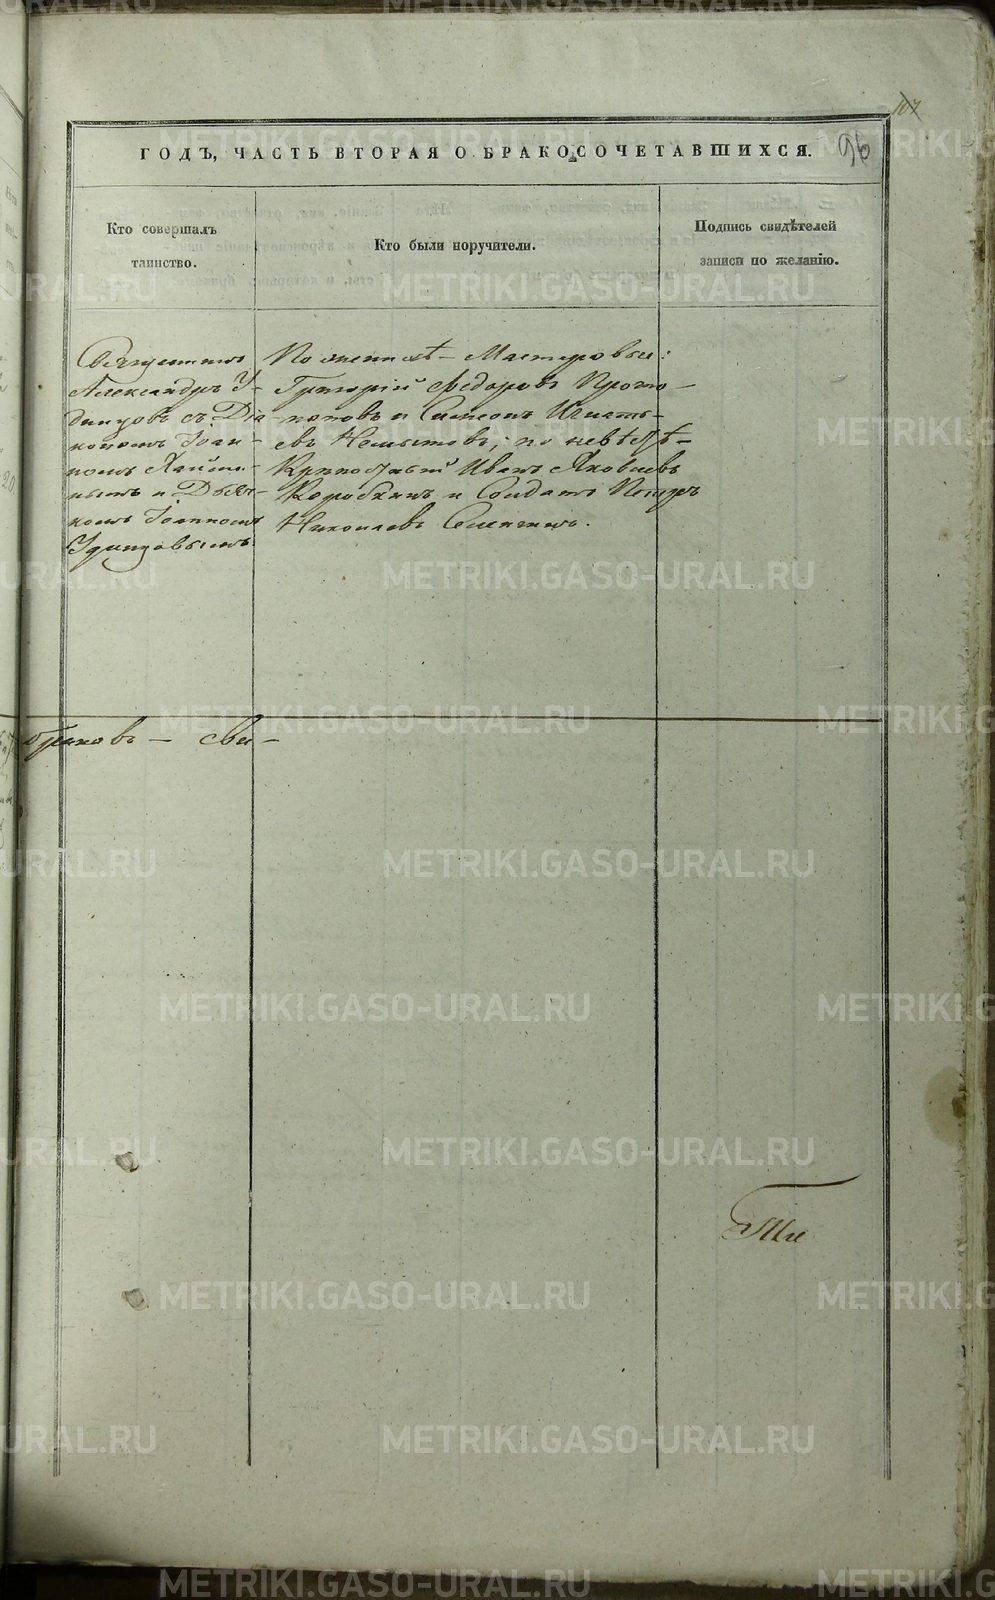 107
ГОДЪ, ЧАСТЬ ВТОРАЯ О БРАКОСОЧЕТАВШИХСЯ.
96
Кто совершалъ
таинство.
Кто были поручители.
Подпись свидѣтелей
записи по желанію.
Священникъ
Александръ У-
динцовъ съ Діа
кономъ Іоан-
номъ
нымъ и Дьяч-
комъ Іоанномъ
Удинцовымъ.
По женихѣ - Мастеровые:
Григорій Федоровъ Прото-
поповъ и Симеонъ Игнать-
евъ; по невѣстѣ -
Иванъ Яковлевъ
Коробкинъ и Солдатъ Петръ
Николаевъ
браковъ - сви-
METRIKI.GASO-URAL.RU